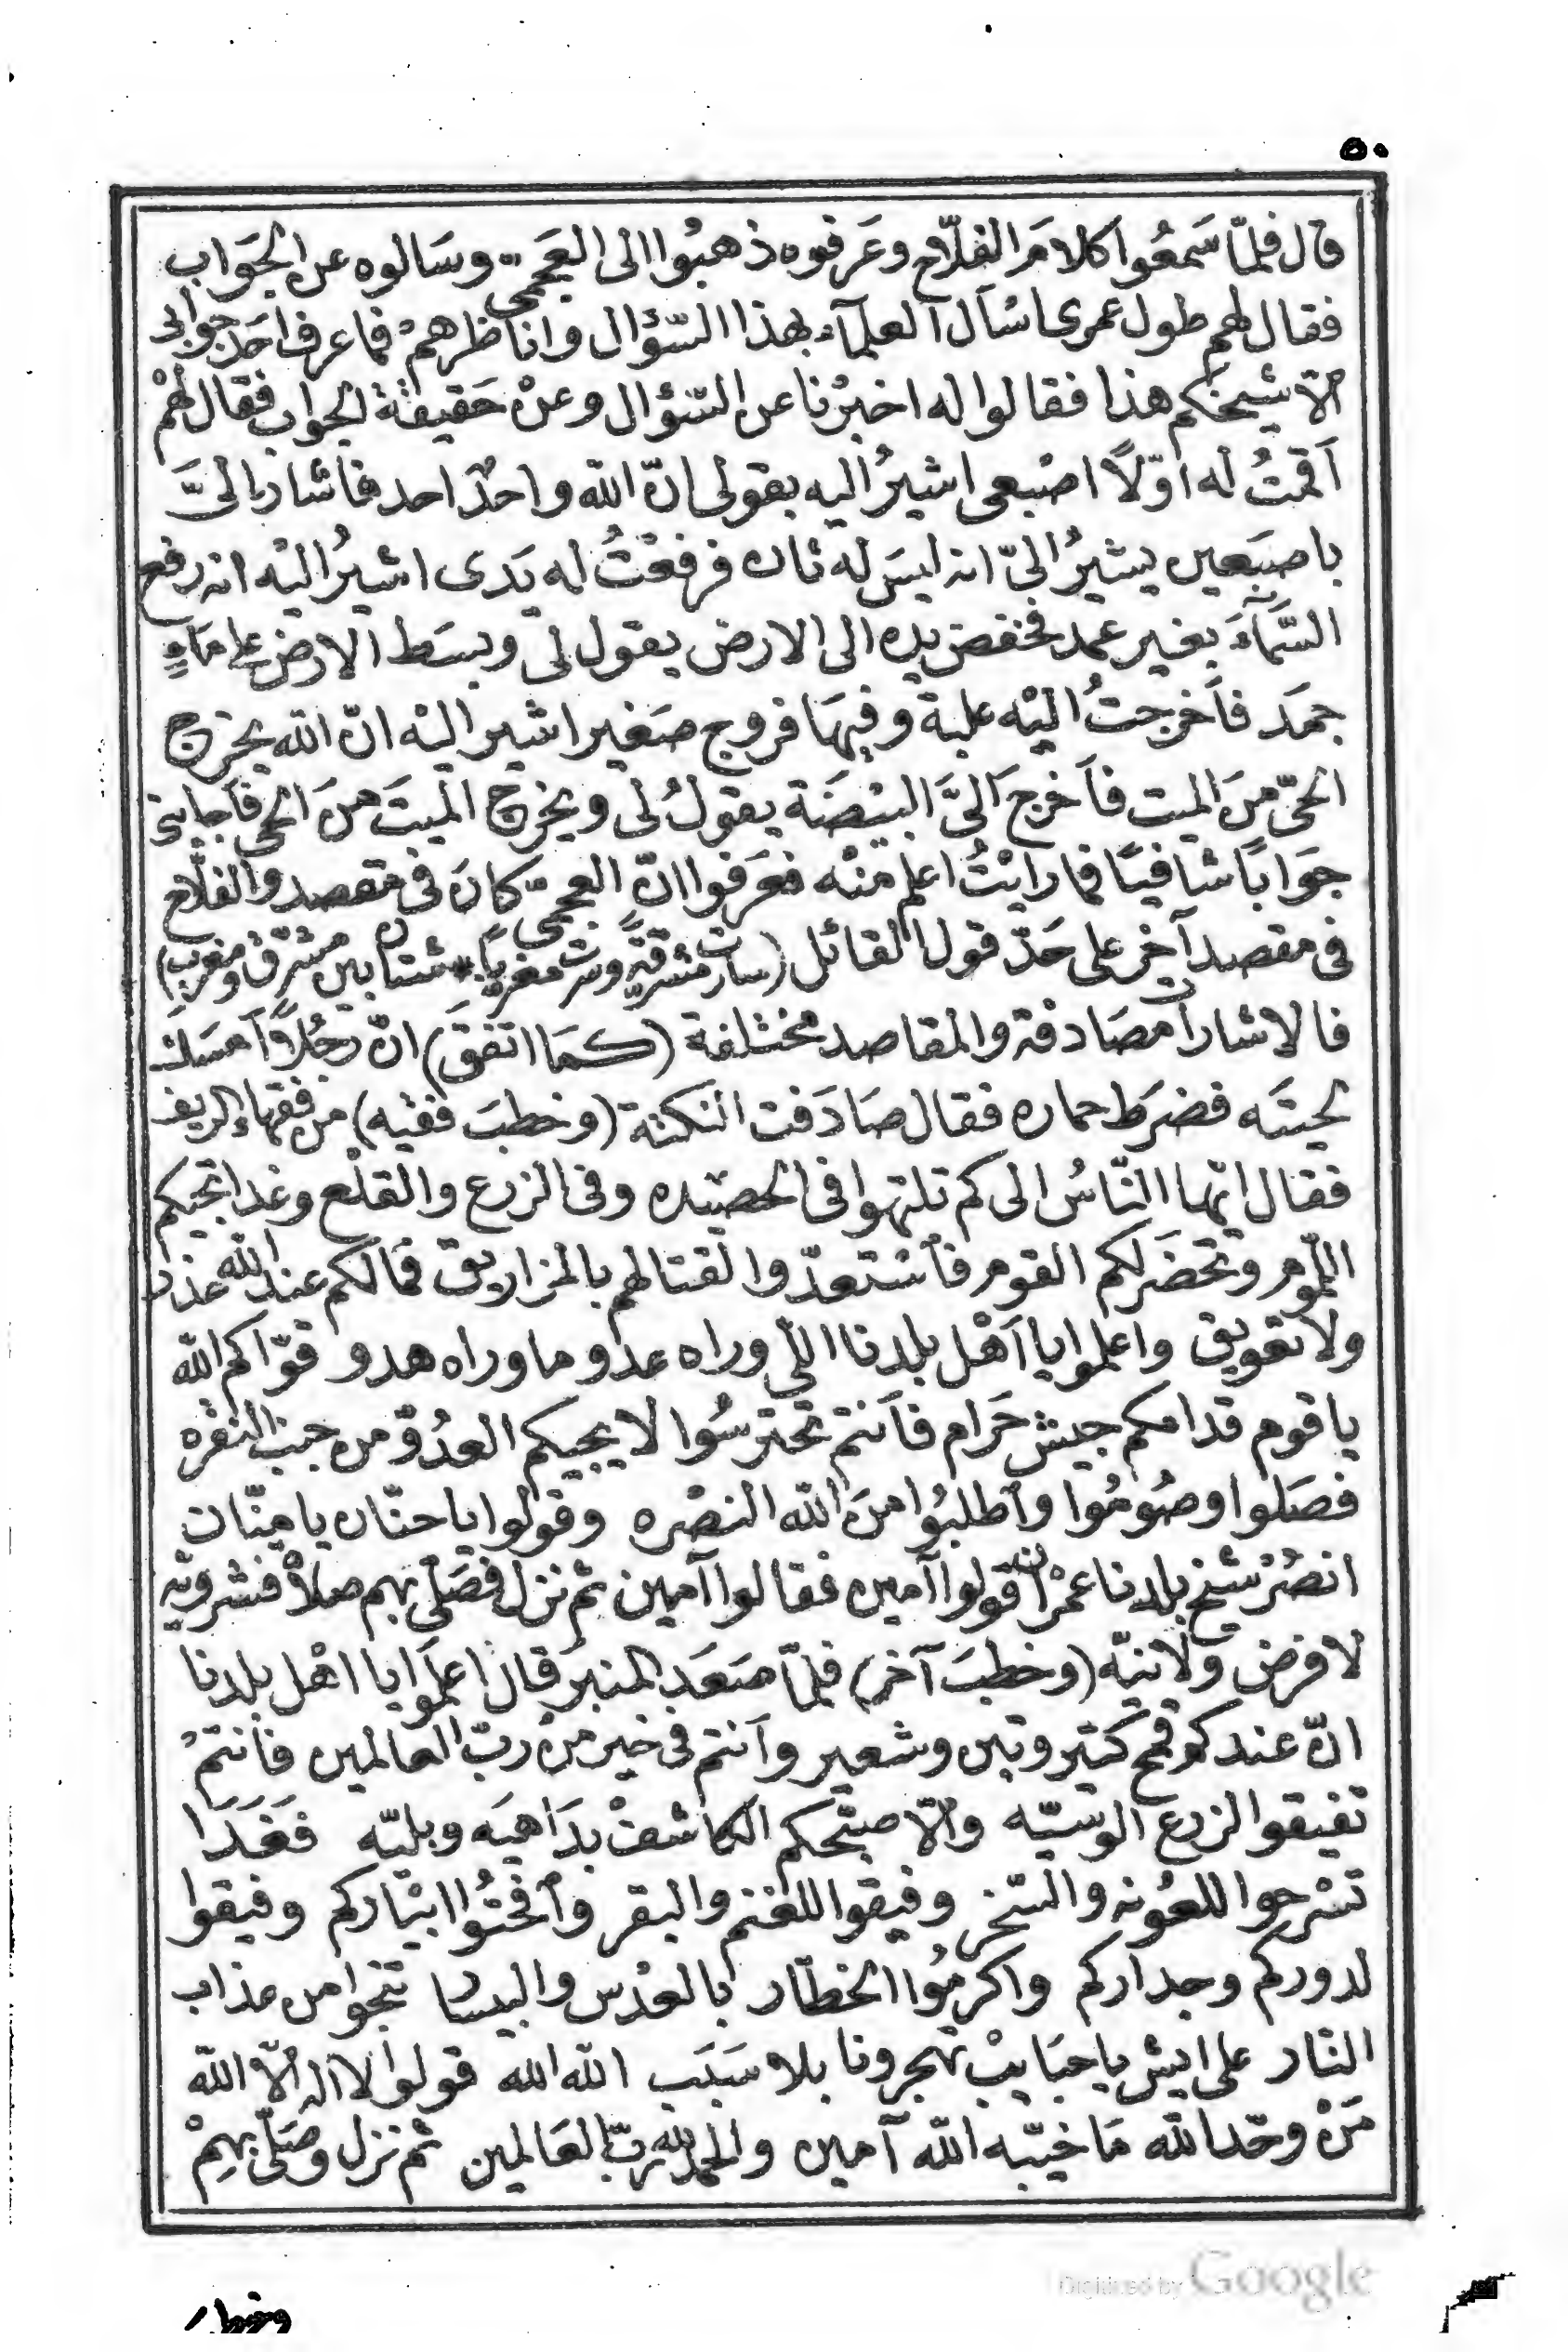 ٥٠
قال فلمّا سَمعُوا كلامَ الفلّاح وعَرفوه ذهبُوا الى العَجمى وسَالوه عن الجَواب
فقال لهم طول عمرى اسْأل العلمآء بهذا السّؤال واناظرهمْ فما عرف احَد جوابى
الّا شيخكم هذا فقالوا له اخبرْنا عن السّؤال وعنْ حَقيقة الجواب فقال لهُمْ
اَقمتُ له اوّلًا اصْبعى اشيرُ اليه بقولى انّ الله واحدٌ احد فأشار الىَّ
باصبَعين يشيرُ الىّ انه ليسَ له ثان فرفعْتُ له يَدى اشيرُ اليْه انه رفع
السَّمآءَ بغير عمد فخفض يده الى الارض يقول لى وبسَط الارض على مَآءٍ
جمَد فأَخرجتُ اليْه علبة وفيهَا فروج صَغير اشير اليْه انّ الله يخرج
الحىّ منَ الميت فأَخرجَ الىَّ البيْضَة يقولُ لى ويخرج الميتَ منَ الحى فأجابنى
جَوابًا شافيًا فما رايْتُ اعلم منْه فعَرفوا انّ العجمىّ كانَ فى مقصد والفلّاح
فى مقصد آخر على حَدّ قول القائل (سارت مشرقةً وسرت مغربًا * شتان بين مشرق ومغربِ)
فالاشارات مصَادفة والمقاصد مختلفة (كمَا اتفقَ) انّ رجُلًا اَمسَك
لحيتَه فضرَط حماره فقال صَادَفت النكتة (وخطبَ فقيه) من فقهاء الريف
فقال ايّها النّاسُ الى كم تلتهوا فى الحصيده وفى الزرع والقلْع وغدا تجيكم
اللّوم وتحضَر لكم القوم فأسْتعدّوا لقتالهم بالمزاريق فمالكم عند الله عذر
ولا تعويق واعلموا يا اَهْل بلدنا اللّى وراه عدو ما وراه هدو قوّاكم الله
يا قوم قدامكم جيش حَرام فأنتم تحترسُوا لا يجيكم العدُوّ من جنب النقره
فصَلوا وصُومُوا واطلبُوا منَ الله النصْره وقولوا يا حنّان يا منّان
انصُرْ شيْخ بلدنا عمْران قولوا آمين فقالوا آمين ثم نزل فصَلّى بهم صلاةْ فشرويّه
لا فرض ولا نيّه (وخطبَ آخر) فلمّا صَعَد المنبر قال اعلَموا يا اهْل بلدنا
انّ عندكم قمح كتير وتبن وشعير واَنتم فى خير منْ ربّ العالمين فأنتمْ
تفيقوا لزرع الوسيّه والّا صبّحكم الكاشفْ بدَاهيَه وبليّه فَغَدَا
تسْرحوا للعُونه والسّخر وفيقوا للغنم والبقر وأفحتُوا ابيْاركم وفيقوا
لدوركم وجداركم واكرمُوا الخطّار بالعدْس والبيسار تنجوا من عذاب
النار على ايش يا حبَايبْ تهجرونا بلا سَبَب الله الله قولوا لا اله الّا الله
مَنْ وحّد الله مَا خيّبه الله آمين والحمد لله ربّ العَالمين ثم نزل وصَلّى بهِمْ
Digitized by Google